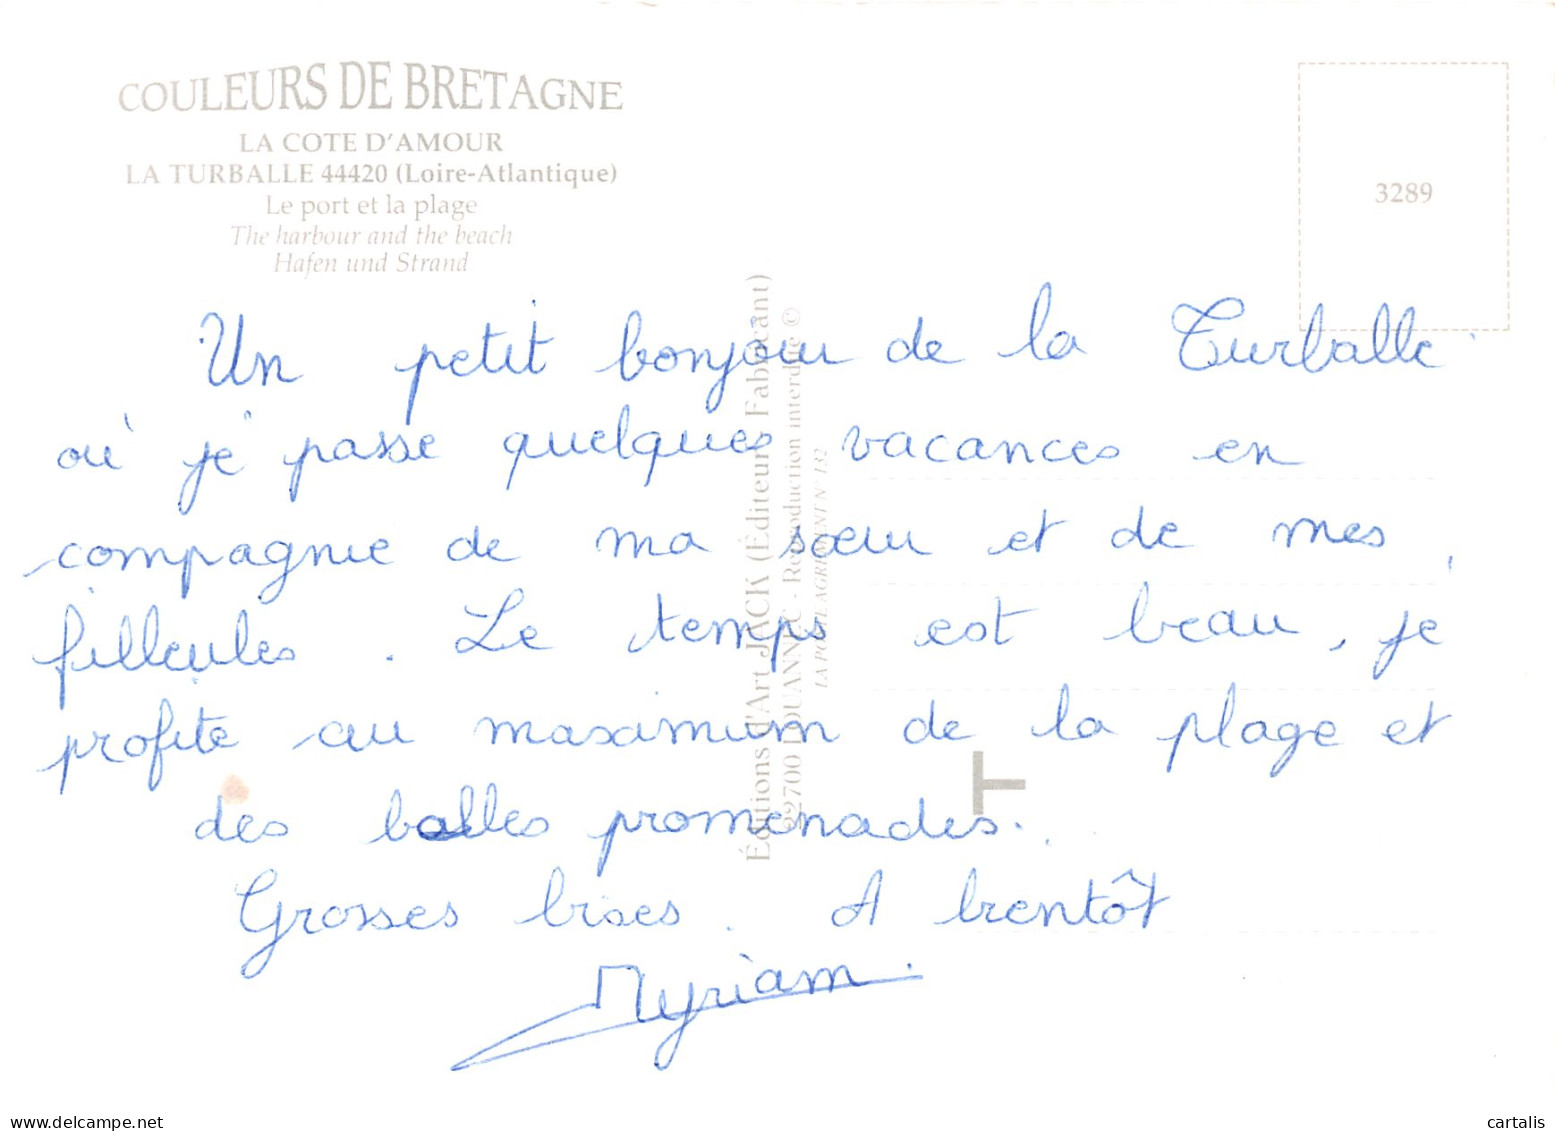 COULEURS DE BRETAGNE
LA COTE D'AMOUR
LA TURBALLE 44420 (Loire-Atlantique)
Le port et la plage
The harbour and the beach
Hafen und Strand
3289
Un petit bonjour de la Turballe
où je passe quelques vacances en
compagnie de ma sœur et de mes
filleules. Le temps est beau, je
profite au maximum de la plage et
des balles promenades.
Grosses bises. A bientôt
Myriam.
Éditions d'Art JACK (Éditeur Fabricant)
22700 LOUANNEC - Reproduction interdite ©
LA POSTE AGRÉMENT N° 132
T
www.delcampe.net
cartalis